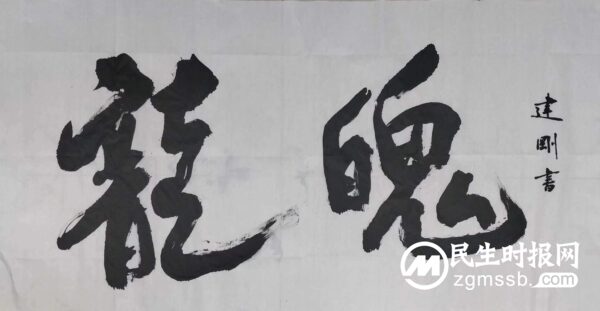 龍魄
建剛書
民生时报网
zgmssb.com